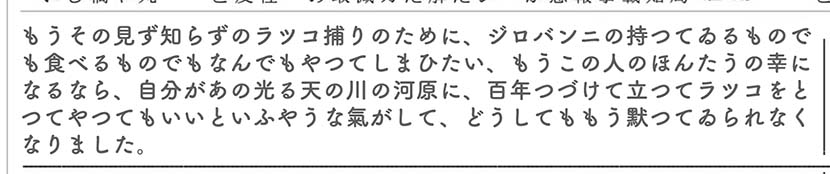 もうその見ず知らずのラツコ捕りのために、ジロバンニの持つてゐるもので
も食べるものでもなんでもやつてしまひたい、もうこの人のほんたうの幸に
なるなら、自分があの光る天の川の河原に、百年つづけて立つてラツコをと
つてやつてもいいといふやうな氣がして、どうしてももう默つてゐられなく
なりました。